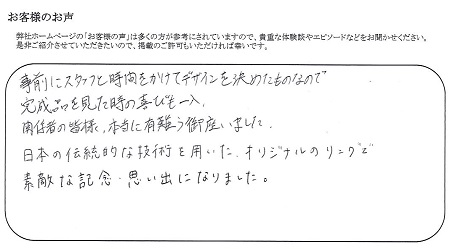 お客様のお声
弊社ホームページの「お客様の声」は多くの方が参考にされていますので、貴重な体験談やエピソードなどをお聞かせください。
是非ご紹介させていただきたいので、掲載のご許可もいただければ幸いです。
事前にスタッフと時間をかけてデザインを決めたものなので
完成品を見た時の喜びも一入。
関係者の皆様、本当に有難う御座いました。
日本の伝統的な技術を用いた、オリジナルのリングで
素敵な記念・思い出になりました。